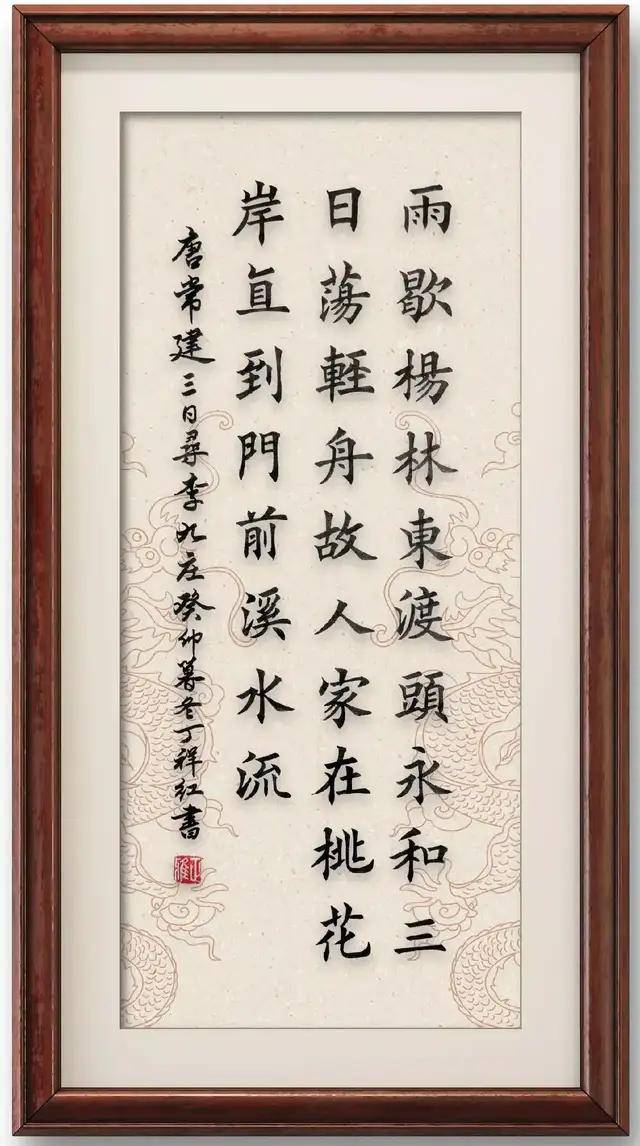 雨歇楊林東渡頭永和三
日蕩輕舟故人家在桃花
岸直到門前溪水流
唐常建三日尋李九庄癸卯暮冬丁祥红書